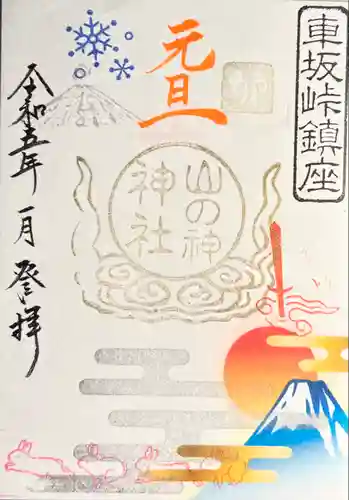 車坂峠鎮座
元旦
山の神
神社
令和五年 一月 登拝